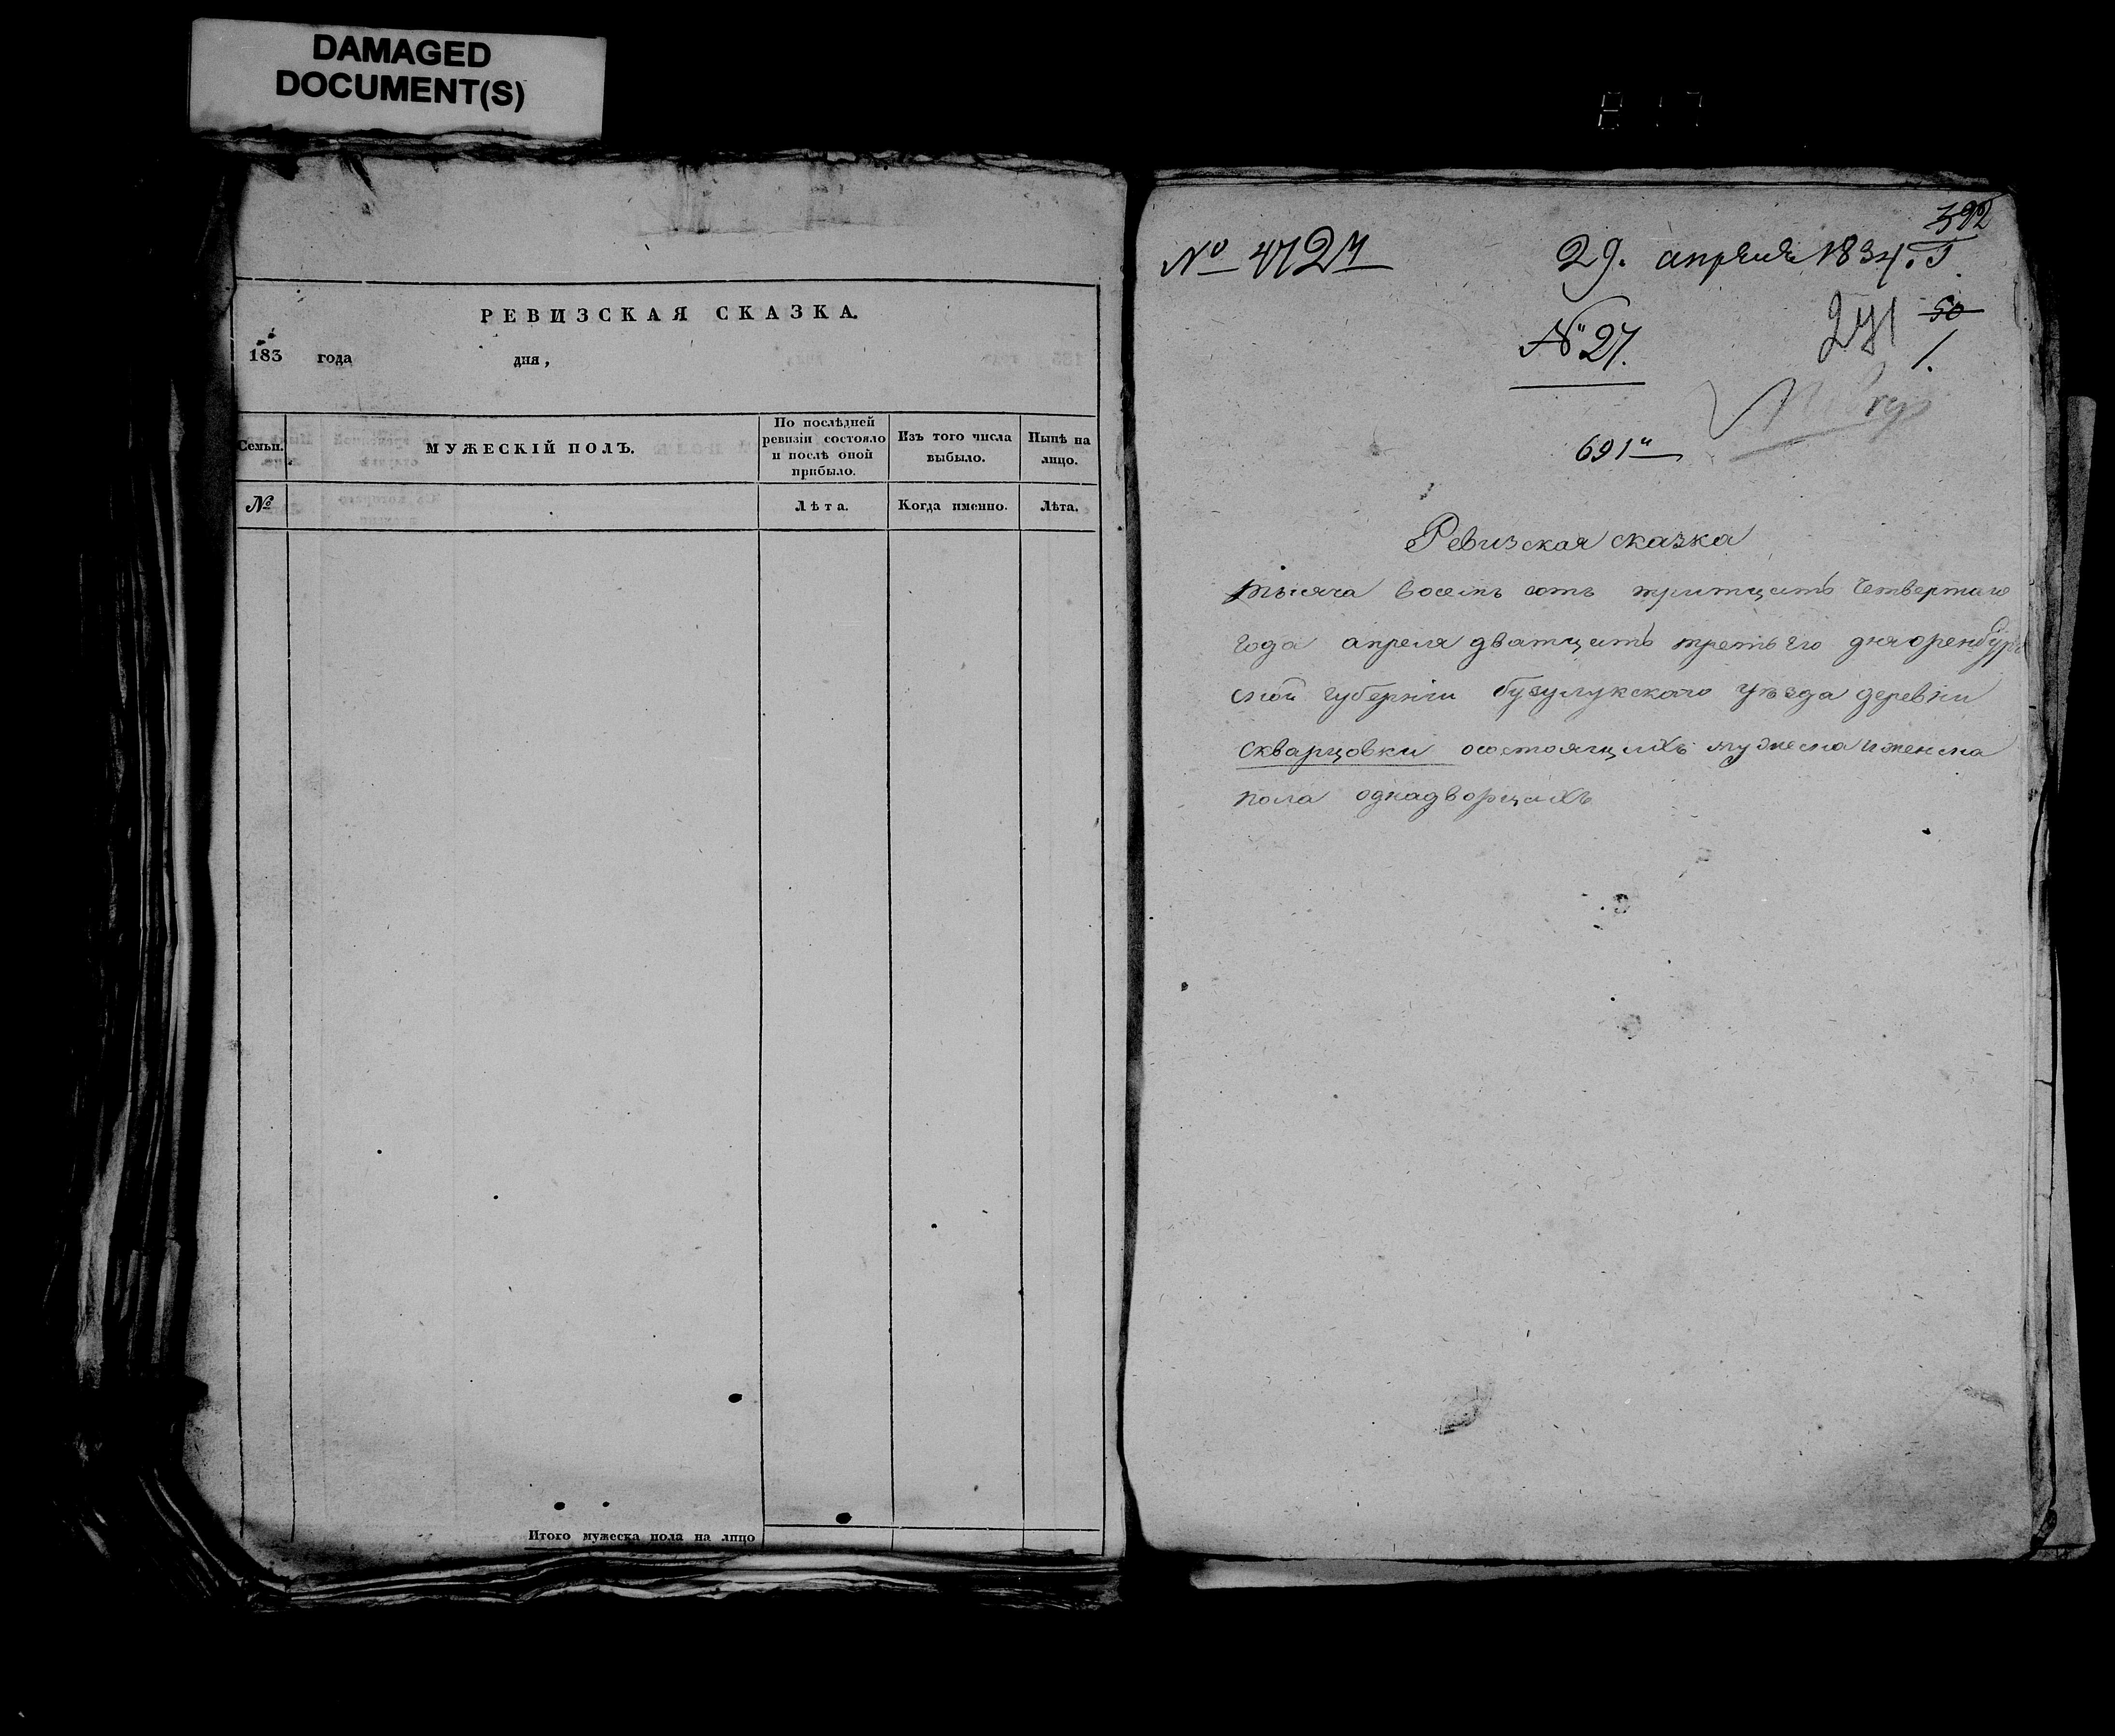 DAMAGED
DOCUMENT(S)
РЕВИЗСКАЯ СКАЗКА.
183 года дня,
Семьи.
МУЖЕСКІЙ ПОЛЪ.
По послѣдней
ревизіи состояло
и послѣ оной
прибыло.
Изъ того числа
выбыло.
Нынѣ на
лицо.
№
Лѣта.
Когда именно.
Лѣта.
Итого мужеска пола на лицо
392
29. апреля 1834. г.
№ 27.
50
1.
691
Ревизская сказка
тысяча восемь сотъ тритцать четвертаго
года апреля дватцать третьего дня оренбург
ской губерніи бузулукскаго уѣзда деревни
скварцовки осостоящихъ мужеска иженска
пола однадворцахъ